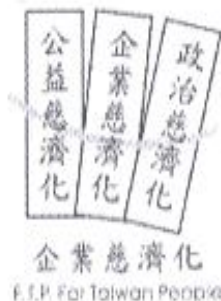 公益慈濟化
企業慈濟化
政治慈濟化
企業慈濟化
F.T.P. For Taiwan People